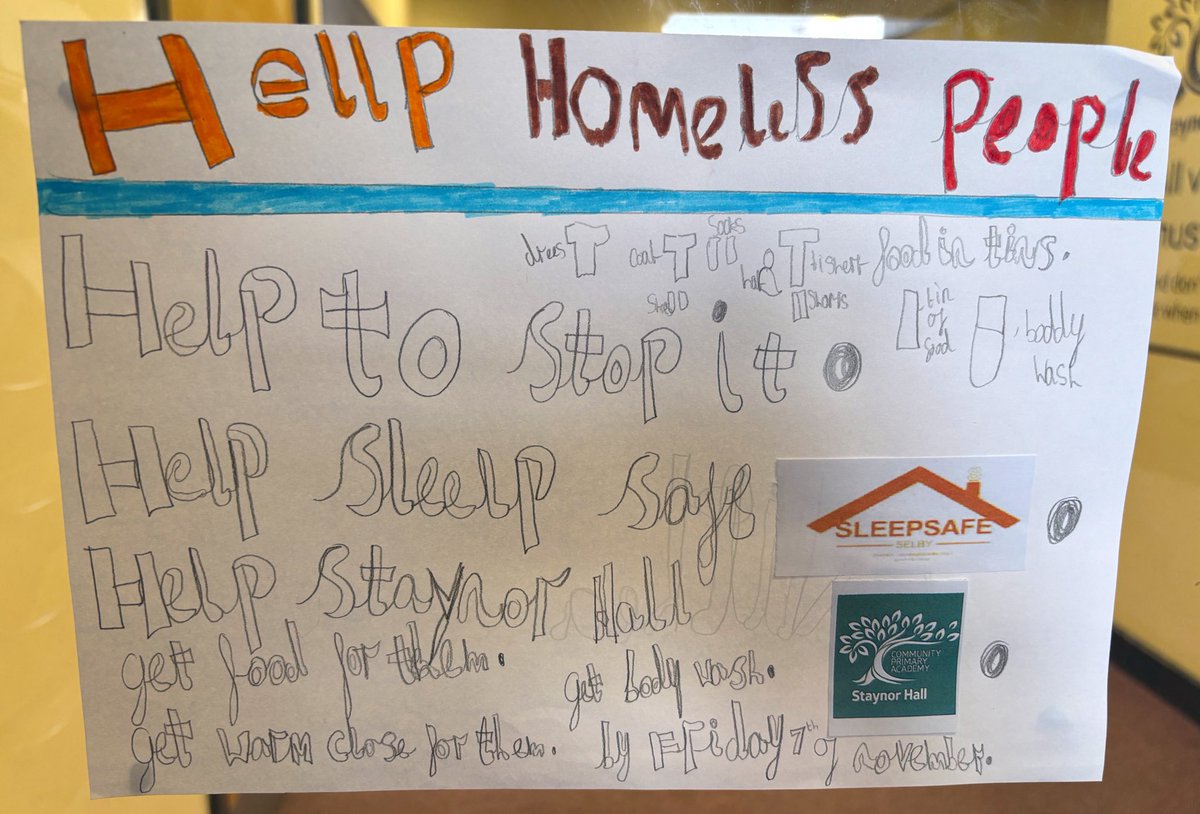 Hellp Homeless People
dress coat Socks hat tishert food in tins.
Shorts tin of food boddy wash
Help to Stop it.
Help Sleep Safe
SLEEPSAFE
SELBY
Help Staynor Hall
COMMUNITY
PRIMARY
ACADEMY
Staynor Hall
get food for them. get body wash.
get warm close for them. by Friday 7th of november.